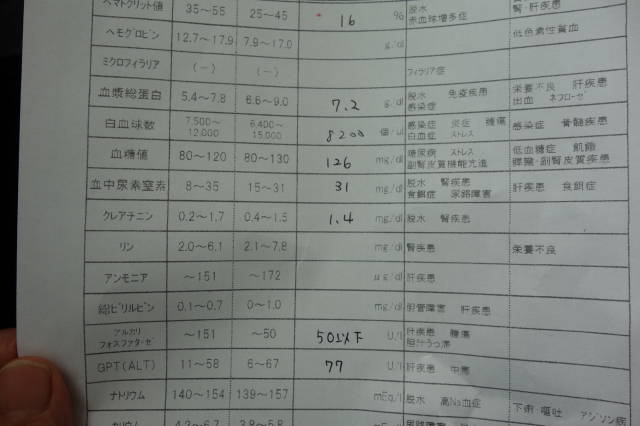 ヘマトクリット値 35～55 25～45 16 % 脱水 赤血球増多症 腎・肝疾患
ヘモグロビン 12.7～17.9 7.9～17.0 g/dl 低色素性貧血
ミクロフィラリア (－) (－) フィラリア症
血漿総蛋白 5.4～7.8 6.6～9.0 7.2 g/dl 脱水 免疫疾患 感染症 栄養不良 肝疾患 出血 ネフローゼ
白血球数 7,500～12,000 6,400～15,000 8200 個/ul 感染症 炎症 腫瘍 白血症 ストレス 感染症 骨髄疾患
血糖値 80～120 80～130 126 mg/dl 糖尿病 ストレス 副腎皮質機能亢進 低血糖症 飢餓 膵臓・副腎皮質疾患
血中尿素窒素 8～35 15～31 31 mg/dl 脱水 腎疾患 食餌症 尿路障害 肝疾患 食餌症
クレアチニン 0.2～1.7 0.4～1.5 1.4 mg/dl 脱水 腎疾患
リン 2.0～6.1 2.1～7.8 mg/dl 腎疾患 栄養不良
アンモニア ～151 ～172 μg/dl 肝疾患
総ビリルビン 0.1～0.7 0～1.0 mg/dl 胆管障害 肝疾患
アルカリフォスファターゼ ～151 ～50 50以下 U/l 肝疾患 腫瘍 胆汁うっ滞
GPT(ALT) 11～58 6～67 77 U/l 肝疾患 中毒
ナトリウム 140～154 139～157 mEq/l 脱水 高Na血症 下痢・嘔吐 アジソン病